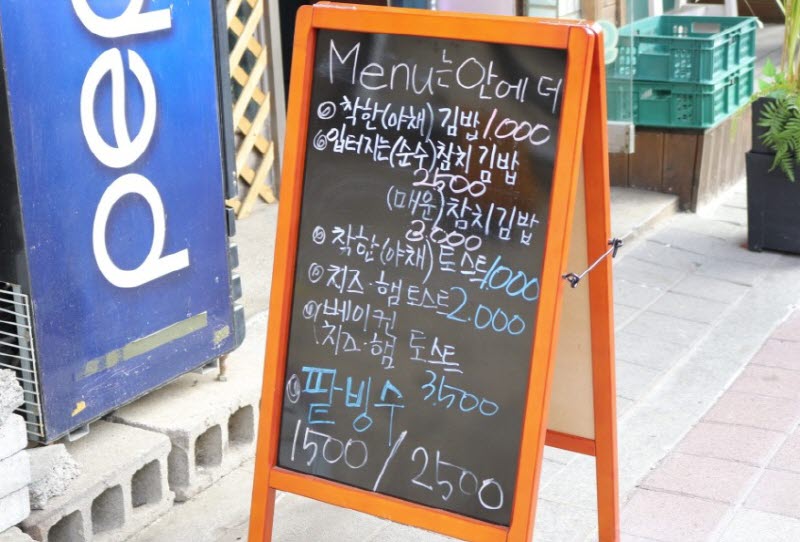 pep
Menu는 안에 더
착한(야채) 김밥 1.000
입터지는(순수)참치 김밥
2500
(매운)참치김밥
3.000
착한(야채) 토스트 1,000
치즈·햄 토스트 2.000
베이컨
치즈·햄 토스트
3.500
팥빙수
1500 / 2500